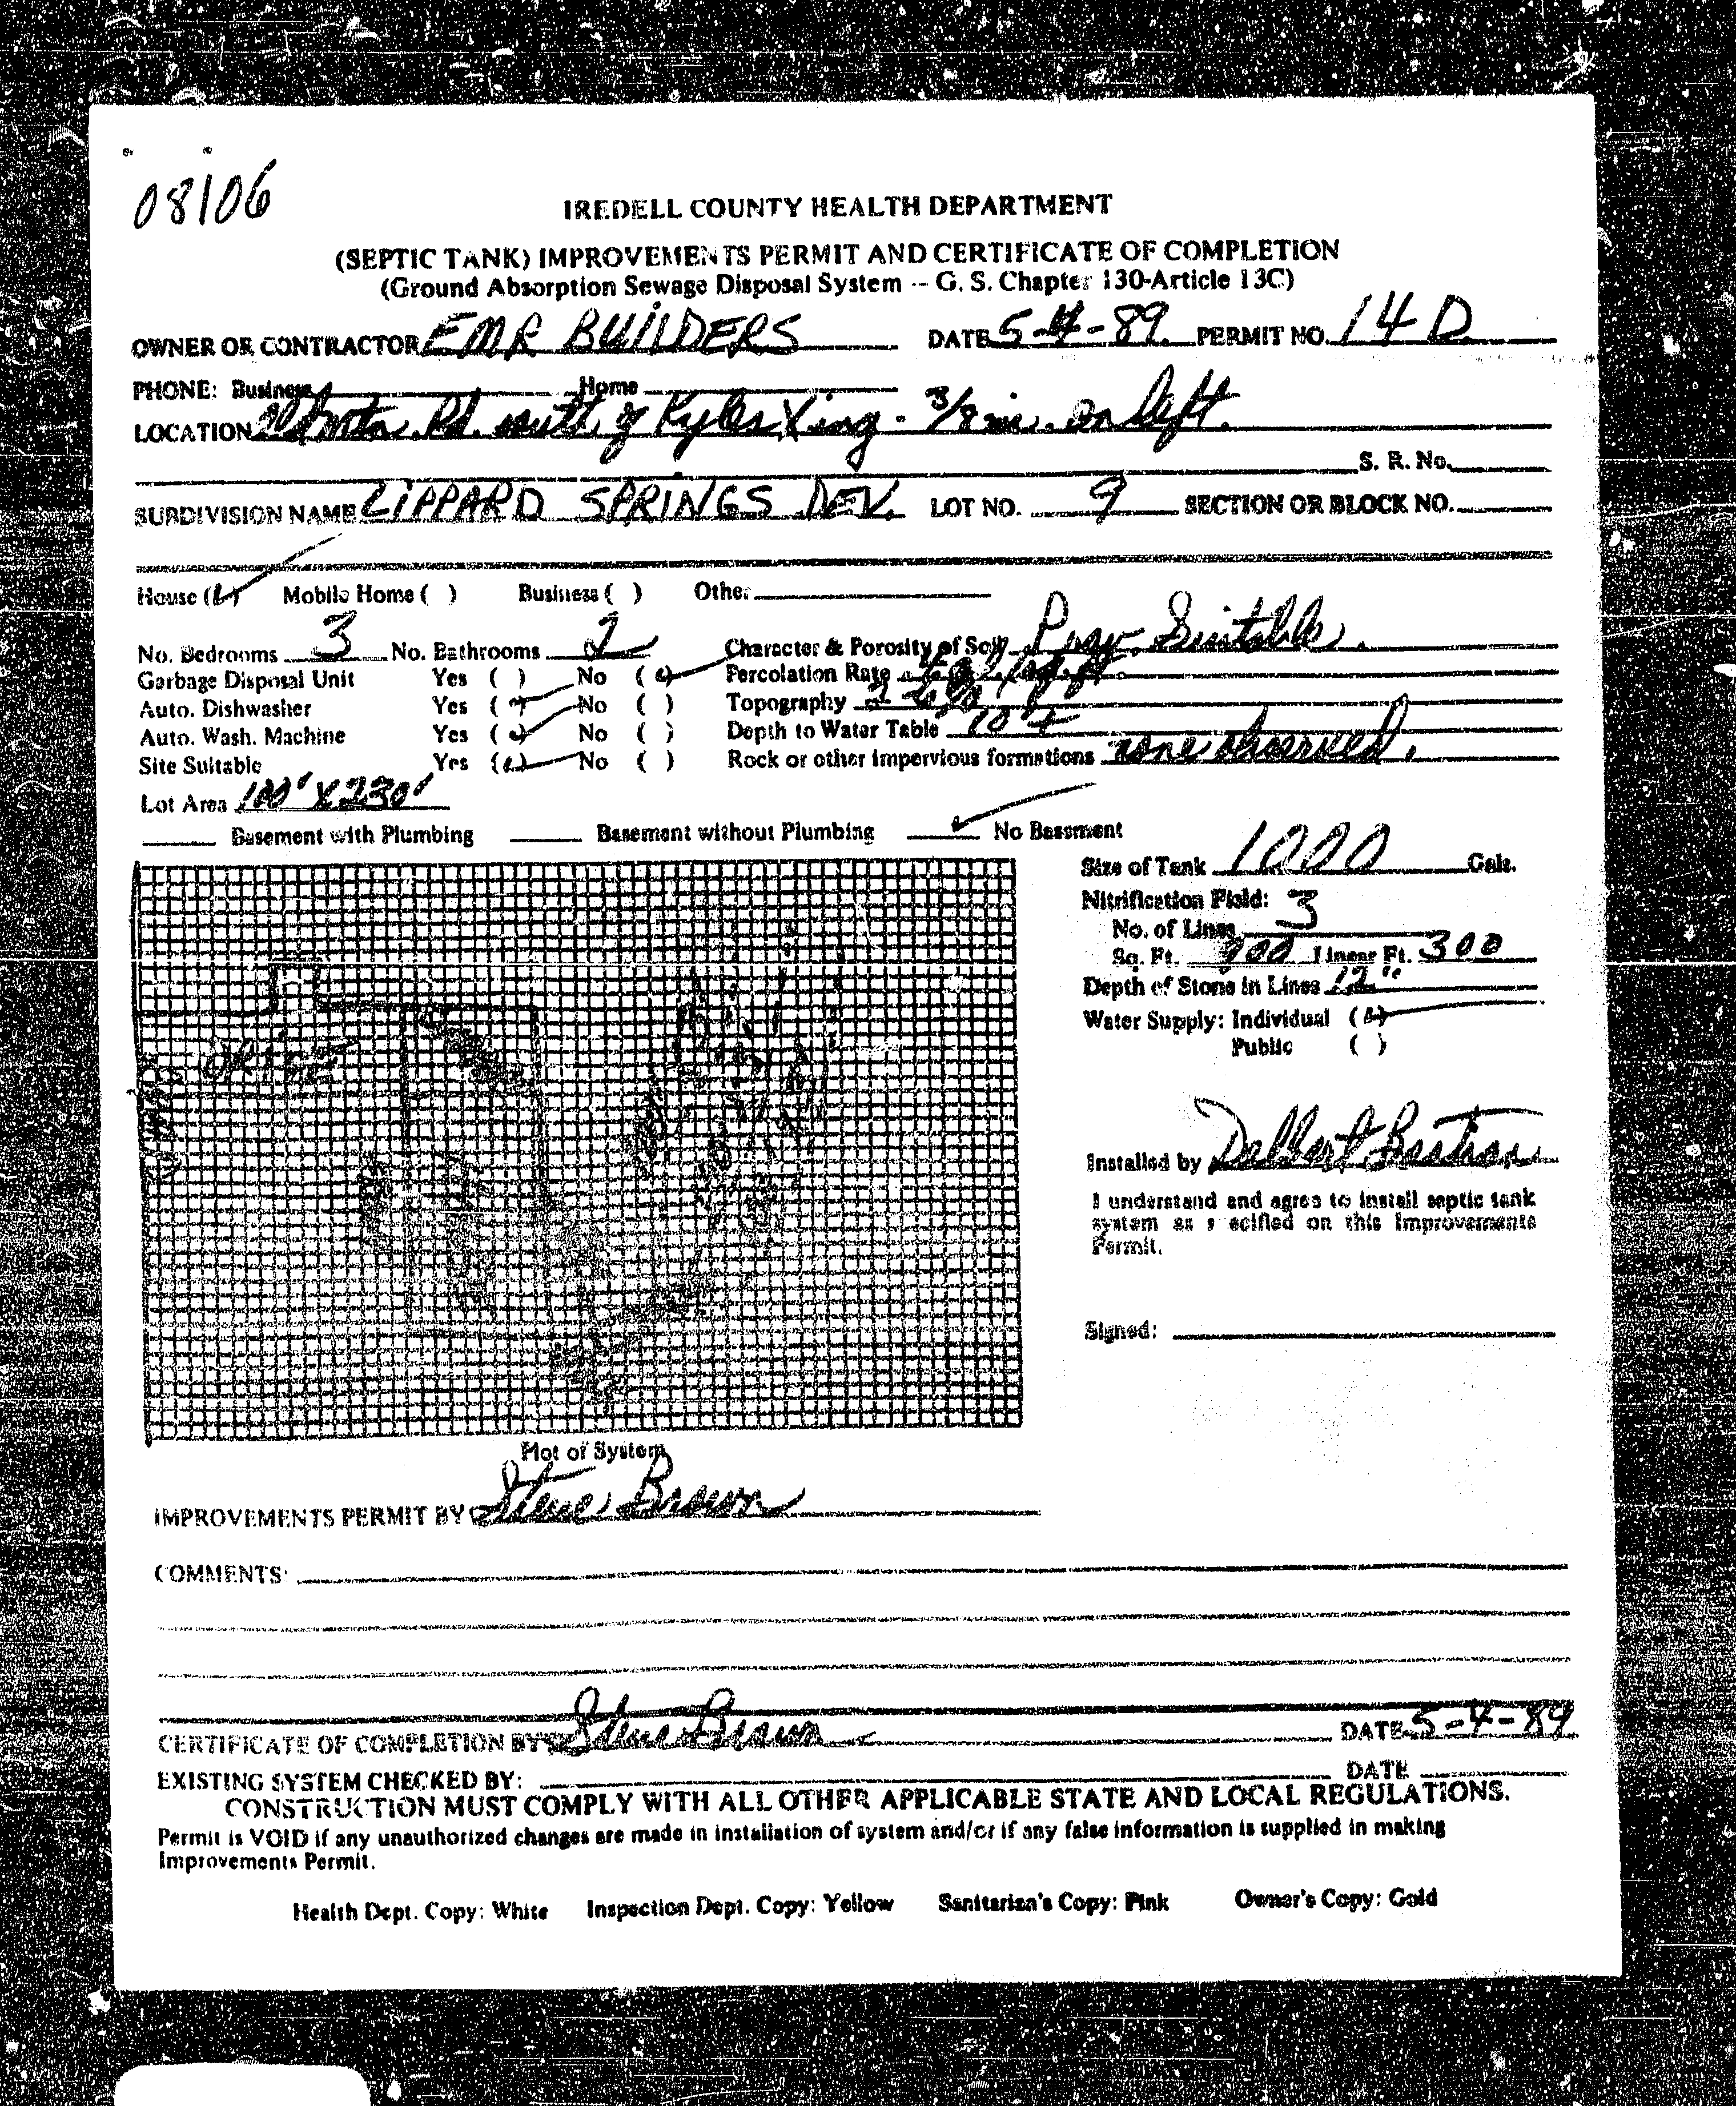 08106
IREDELL COUNTY HEALTH DEPARTMENT
(SEPTIC TANK) IMPROVEMENTS PERMIT AND CERTIFICATE OF COMPLETION
(Ground Absorption Sewage Disposal System -- G. S. Chapter 130-Article 13C)
OWNER OR CONTRACTOR EMR BUILDERS DATE 5-4-89 PERMIT NO. 14 D
PHONE: Business Home
LOCATION Rd. south of Kyles Xing - 3/8 mi. on left.
S. R. No.
SUBDIVISION NAME LIPPARD SPRINGS DEV. LOT NO. 9 SECTION OR BLOCK NO.
House ( ) Mobile Home ( ) Business ( ) Other
No. Bedrooms 3 No. Bathrooms 2 Character & Porosity of Soil Prov. Suitable.
Garbage Disposal Unit Yes ( ) No ( ) Percolation Rate
Auto. Dishwasher Yes ( ) No ( ) Topography
Auto. Wash. Machine Yes ( ) No ( ) Depth to Water Table 10'+
Site Suitable Yes ( ) No ( ) Rock or other impervious formations none observed.
Lot Area 100' X 230'
Basement with Plumbing Basement without Plumbing ✓ No Basement
Size of Tank 1000 Gals.
Nitrification Field:
No. of Lines 3
Sq. Ft. 900 Linear Ft. 300
Depth of Stone in Lines 12"
Water Supply: Individual ( )
Public ( )
DRIVE
Installed by Delbert Bustian
I understand and agree to install septic tank
system as s ecified on this Improvements
Permit.
Signed:
Plot of System
IMPROVEMENTS PERMIT BY Steve Brown
COMMENTS:
CERTIFICATE OF COMPLETION BY Steve Brown DATE 5-4-89
EXISTING SYSTEM CHECKED BY: DATE
CONSTRUCTION MUST COMPLY WITH ALL OTHER APPLICABLE STATE AND LOCAL REGULATIONS.
Permit is VOID if any unauthorized changes are made in installation of system and/or if any false information is supplied in making
Improvements Permit.
Health Dept. Copy: White Inspection Dept. Copy: Yellow Sanitarian's Copy: Pink Owner's Copy: Gold